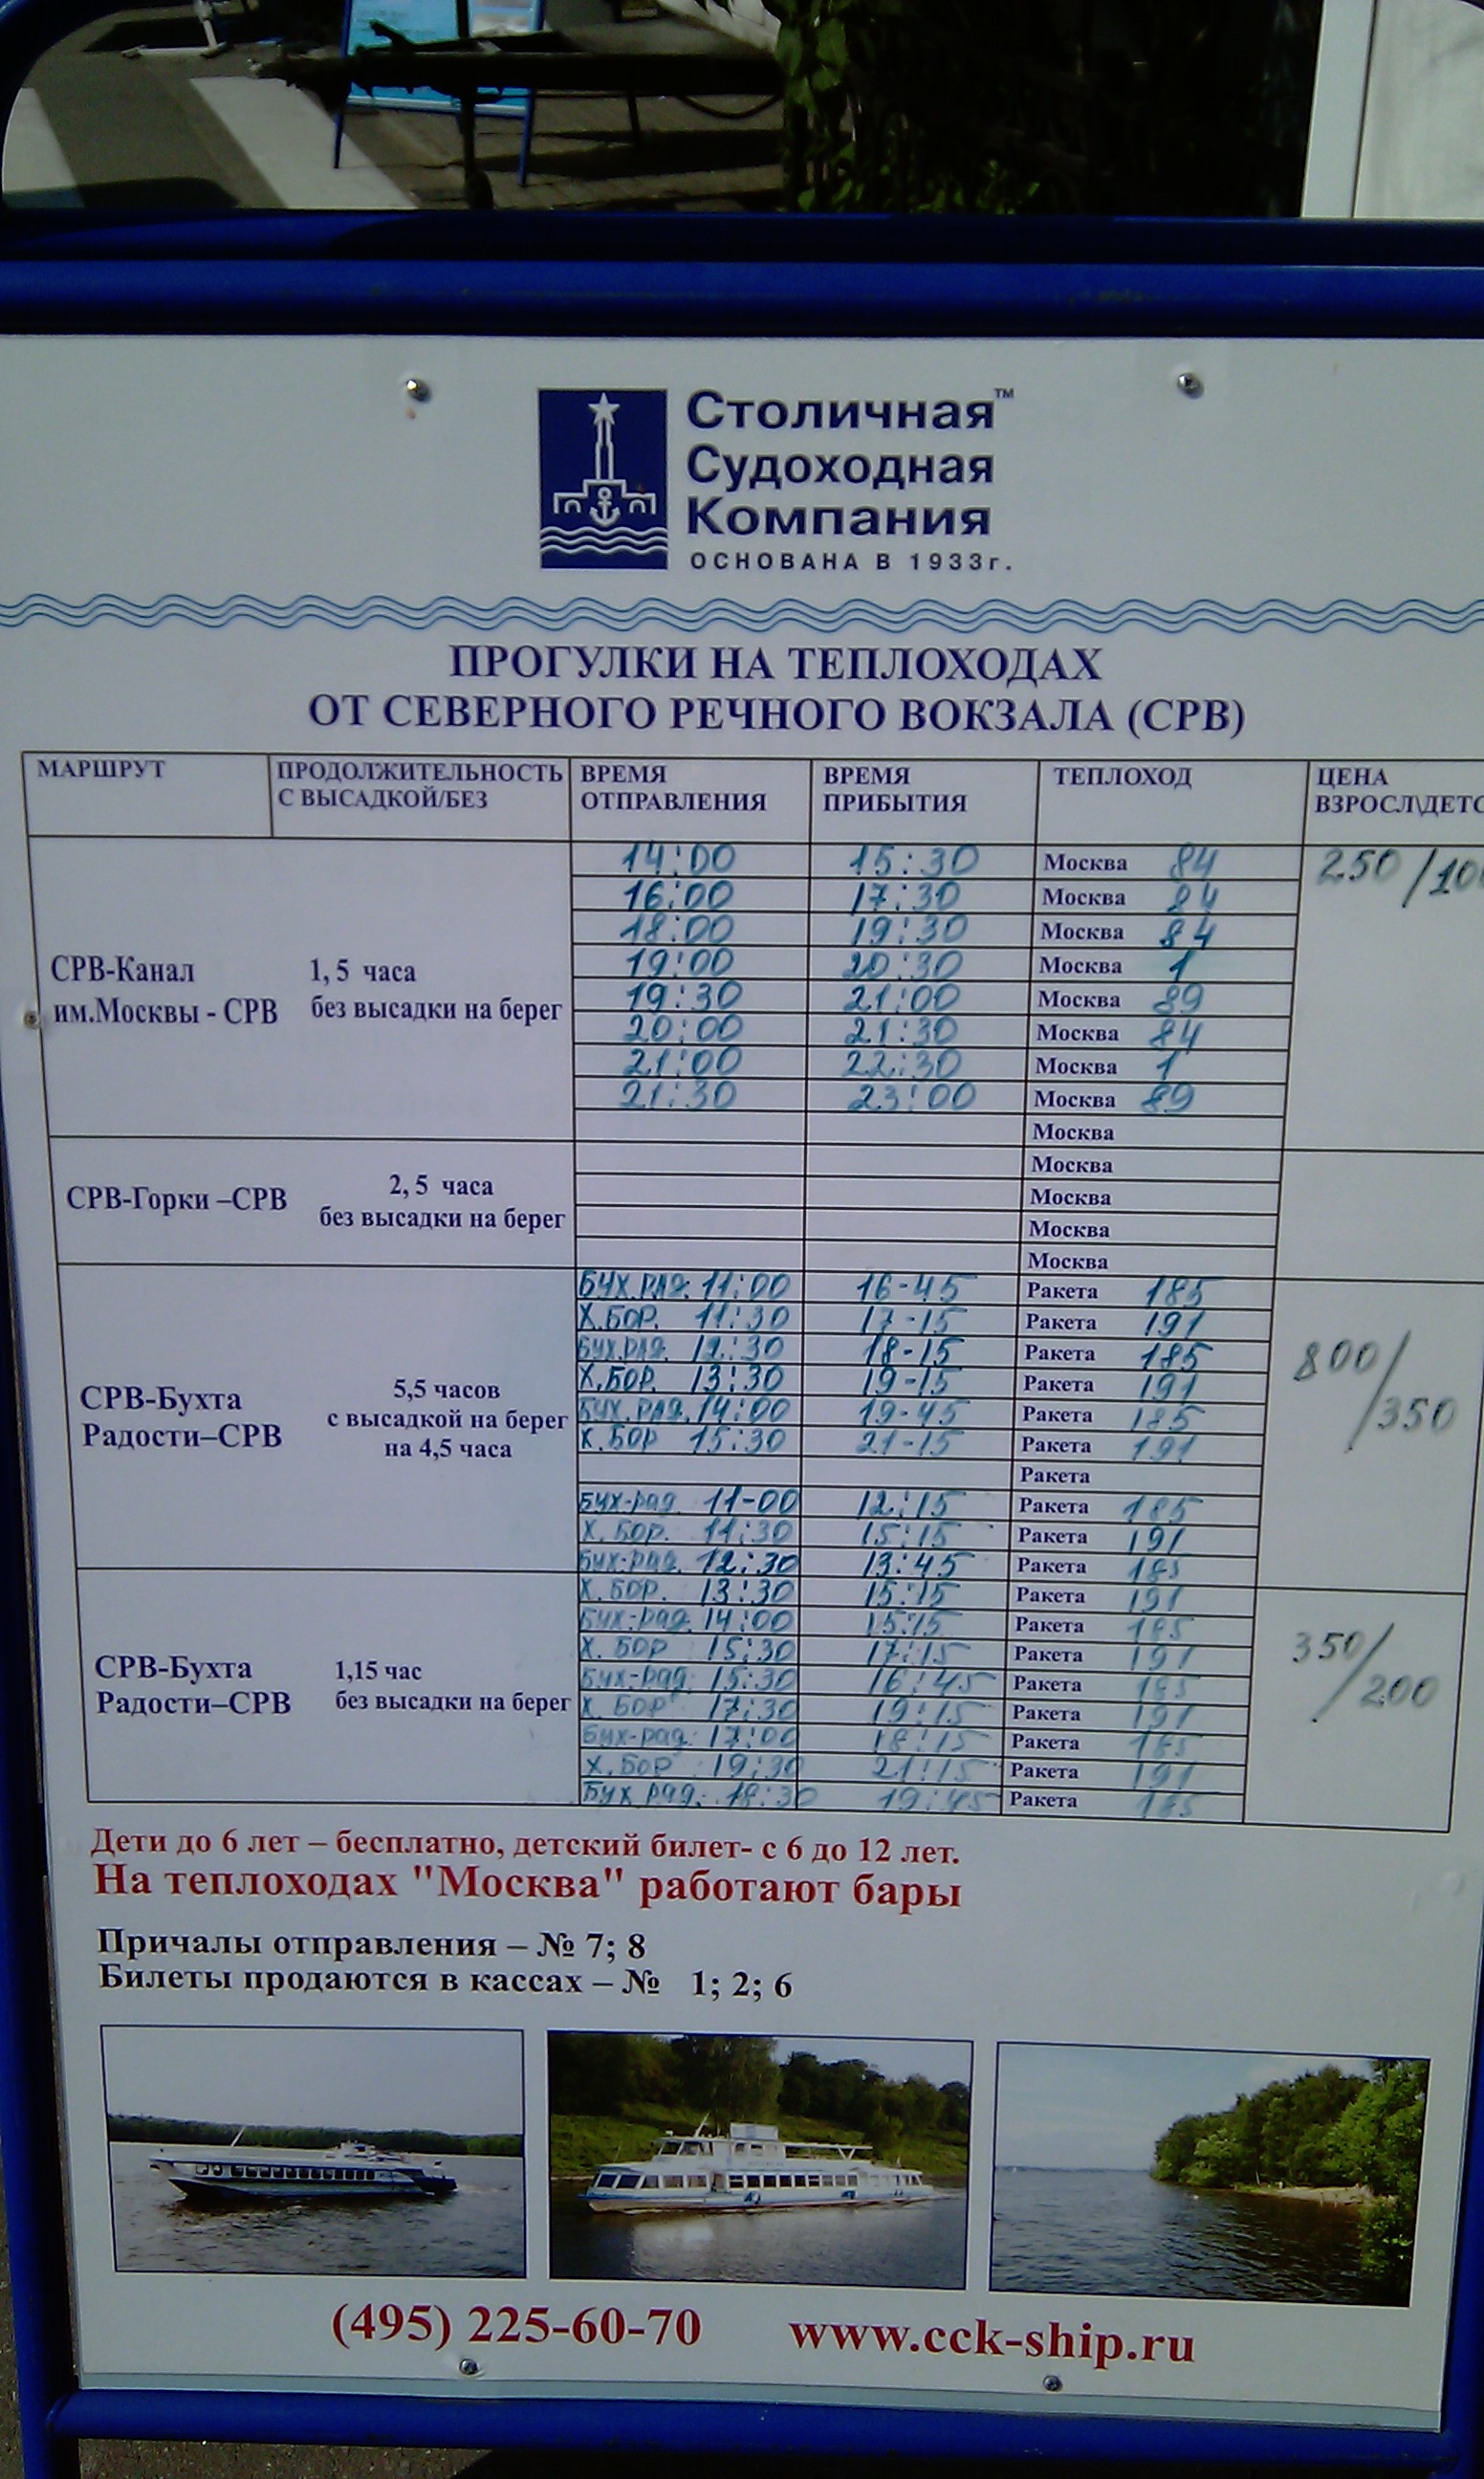 Столичная™
Судоходная
Компания
ОСНОВАНА В 1933г.
ПРОГУЛКИ НА ТЕПЛОХОДАХ
ОТ СЕВЕРНОГО РЕЧНОГО ВОКЗАЛА (СРВ)
МАРШРУТ ПРОДОЛЖИТЕЛЬНОСТЬ ВРЕМЯ ВРЕМЯ ТЕПЛОХОД ЦЕНА
С ВЫСАДКОЙ/БЕЗ ОТПРАВЛЕНИЯ ПРИБЫТИЯ ВЗРОСЛ\ДЕТС
14:00 15:30 Москва 84 250/10
16:00 17:30 Москва 84
18:00 19:30 Москва 84
СРВ-Канал 1, 5 часа 19:00 20:30 Москва 1
им.Москвы - СРВ без высадки на берег 19:30 21:00 Москва 89
20:00 21:30 Москва 84
21:00 22:30 Москва 1
21:30 23:00 Москва 89
Москва
Москва
СРВ-Горки –СРВ 2, 5 часа Москва
без высадки на берег Москва
Москва
БУХ.РАД. 11:00 16-45 Ракета 185
Х.БОР. 11:30 17-15 Ракета 191
БУХ.РАД. 12:30 18-15 Ракета 185 800/350
СРВ-Бухта 5,5 часов Х.БОР. 13:30 19-15 Ракета 191
с высадкой на берег БУХ.РАД. 14:00 19-45 Ракета 185
Радости–СРВ на 4,5 часа Х.БОР 15:30 21-15 Ракета 191
Ракета
БУХ-рад. 11-00 12:15 Ракета 185
Х.БОР. 11:30 15:15 Ракета 191
БУХ-рад. 12:30 13:45 Ракета 185
Х.БОР. 13:30 15:15 Ракета 191
БУХ-рад. 14:00 15:15 Ракета 185
Х.БОР 15:30 17:15 Ракета 191 350/200
СРВ-Бухта 1,15 час БУХ-рад. 15:30 16:45 Ракета 185
Радости–СРВ без высадки на берег Х.БОР 17:30 19:15 Ракета 191
БУХ-рад. 17:00 18:15 Ракета 185
Х.БОР 19:30 21:15 Ракета 191
БУХ рад. 18:30 19:45 Ракета 185
Дети до 6 лет – бесплатно, детский билет- с 6 до 12 лет.
На теплоходах "Москва" работают бары
Причалы отправления – № 7; 8
Билеты продаются в кассах – № 1; 2; 6
(495) 225-60-70 www.cck-ship.ru